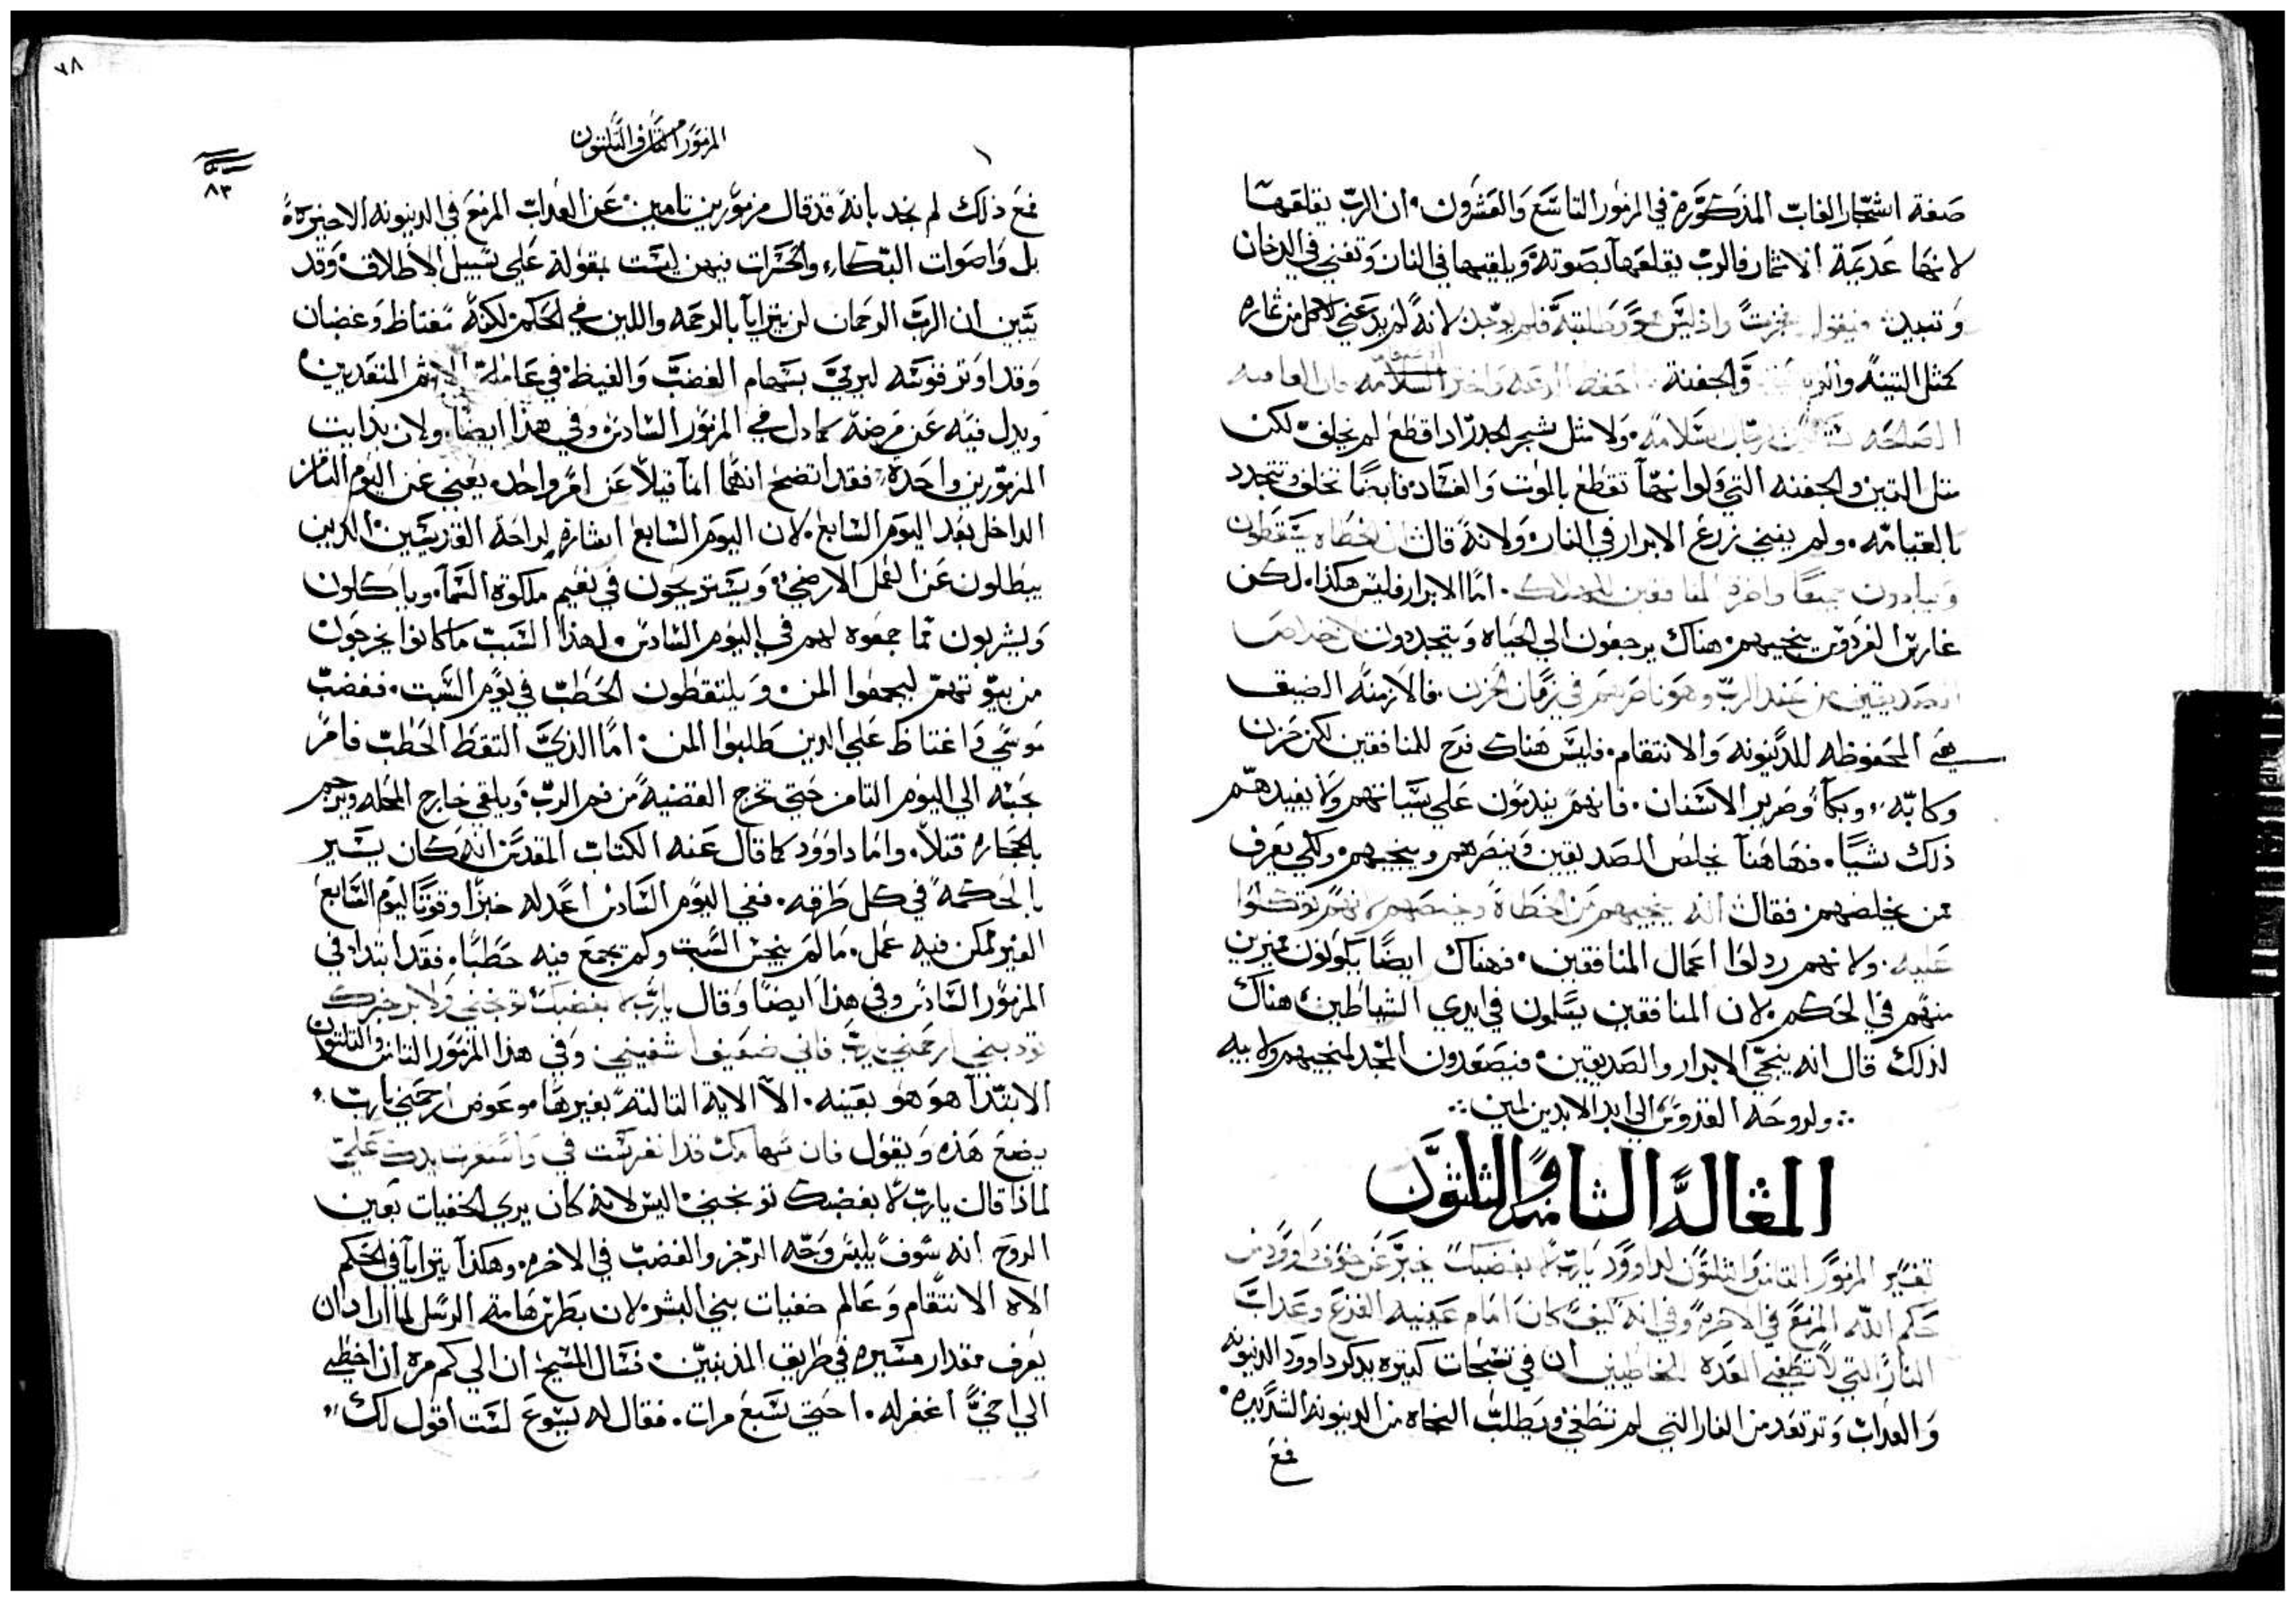 صفة اشجار الغاب المذكورة في المزمور التاسع والعشرون. ان الرب يقلعها
لانها عديمة الاثمار فالرب يقلعها بصوته ويلقيها في النار وتفني في الدخان
وتبيد. فيقول واذ ليس طلبته فلم يوجد. لانه لم يدعني لاكل من ثماره
كمثل التينة والجفنة. احفظ السلامه فان العاقبه
الصالحه سلامة. ولا مثل شجر اذا قطع لم يخلف لكن
مثل التين والجفنه التي ولو انها تقطع بالموت والفساد فايضا تخلف وتتجدد
بالقيامه. ولم يفني زرع الابرار في النار. ولانه قال ان الخطاه يسقطون
ويبادون جميعا واخرة المنافقين للهلاك. اما الابرار فليس هكذا. لكن
غارس الفردوس ينجيهم. هناك يرجعون الي الحياه ويتجددون خلاص
الصديقين من عند الرب وهو ناصرهم في زمان الحزن. فالازمنه الضيق
هي المحفوظه للدينونه والانتقام. فليس هناك فرح للمنافقين لكن حزن
وكابه، وبكا وصرير الاسنان. فانهم يندمون علي سياتهم ولا يفيدهم
ذلك شيا. فهاهنا يخلص الصديقين وينصرهم وينجيهم. ولكي يعرف
من يخلصهم فقال انه ينجيهم من الخطاة ويخلصهم لانهم توكلوا
عليه. ولانهم ردلوا اعمال المنافقين. فهناك ايضا يكونون مميزين
منهم في الحكم. لان المنافقين يسلمون في ايدي الشياطين. هناك
لذلك قال انه ينجي الابرار والصديقين. فيصعدون المجد لمنجيهم ولابيه
ولروحه القدوس الي ابد الابدين امين
المقالة الثامنة والثلثون
تفسير المزمور الثامن والثلثون لداوود يارب لا بغضبك يخبر عن خوف داوود من
حكم الله المزمع في الاخره وفي انه كيف كان امام عينيه الفزع وعداب
النار التي لا تطفي المعده للخاطيين ان في تسبحات كثيره يدكر داوود الدينونه
والعداب وترتعد من النار التي لم تنطفي ويطلب النجاه من الدينونه الشديده
فمع
٧٨
المزمور الثامن والثلثون
٨٣
فمع ذلك لم نجد بانه قد قال مزمورين تامين عن العداب المزمع في الدينونه الاخيرة
بل واصوات البكاء والحسرات فيهن ليست بمقوله علي سبيل الاطلاق وقد
يتبين ان الرب الرحمان لن يترايا بالرحمه واللين في الحكم. لكنه مغتاظ وغضبان
وقد اوتر قوسه ليرمي بسهام الغضب والغيظ في عاملي الاثم المنفدين
ويدل فيه عن مرضه كما دل في المزمور السادس وفي هذا ايضا. ولان بدايت
المزمورين واحدة، فقد اتضح انهما انما قيلا عن امر واحد. يعني عن اليوم الثامن
الداخل بعد اليوم السابع. لان اليوم السابع اشاره لراحة القديسين الدين
يبطلون عن العمل الارضي، ويستريحون في نعيم ملكوة السما. وياكلون
ويشربون مما جمعوه لهم في اليوم السادس. لهذا السبب ما كانوا يخرجون
من بيوتهم ليجمعوا المن. ويلتقطون الحطب في يوم السبت. فغضب
موسي واغتاظ علي الدين طلبوا المن. اما الذي التقط الحطب فامر
بحبسه الي اليوم الثامن حتي تخرج القضيه من فم الرب. ويلقي خارج المحله ويرجم
بالحجاره قتلا. واما داوود كما قال عنه الكتاب المقدس انه كان يسير
بالحكمه في كل طرقه. ففي اليوم السادس اعد له خبزا وقوتا اليوم السابع
الغير ممكن فيه عمل. ما لم ينجس السبت ولم يجمع فيه حطبا. فقد ابتدا في
المزمور السادس وفي هذا ايضا وقال يارب لا بغضبك توبخني ولا برجزك
تودبني ارحمني يارب فاني ضعيف اشفيني. وفي هذا المزمور الثامن والثلثون
الابتدا هو هو بعينه. الا الاية الثالثه بغيرها عوض ارحمني يارب
يضع هذه ويقول فان سهامك قد انغرست في واستقرت يدك علي
لماذا قال يارب لا بغضبك توبخني اليس لانه كان يري الخفيات بعين
الروح انه سوف يلبس وجه الرجز والغضب في الاخره. وهكذا يترايا في الحكم
الاه الانتقام وعالم خفيات بني البشر. لان بطرس هامة الرسل لما اراد ان
يعرف مقدار مسيره في طريق المذنبين. فسال المسيح ان الي كم مرة ان اخطي
الي اخي اغفر له. احتي سبع مرات. فقال له يسوع لست اقول لك